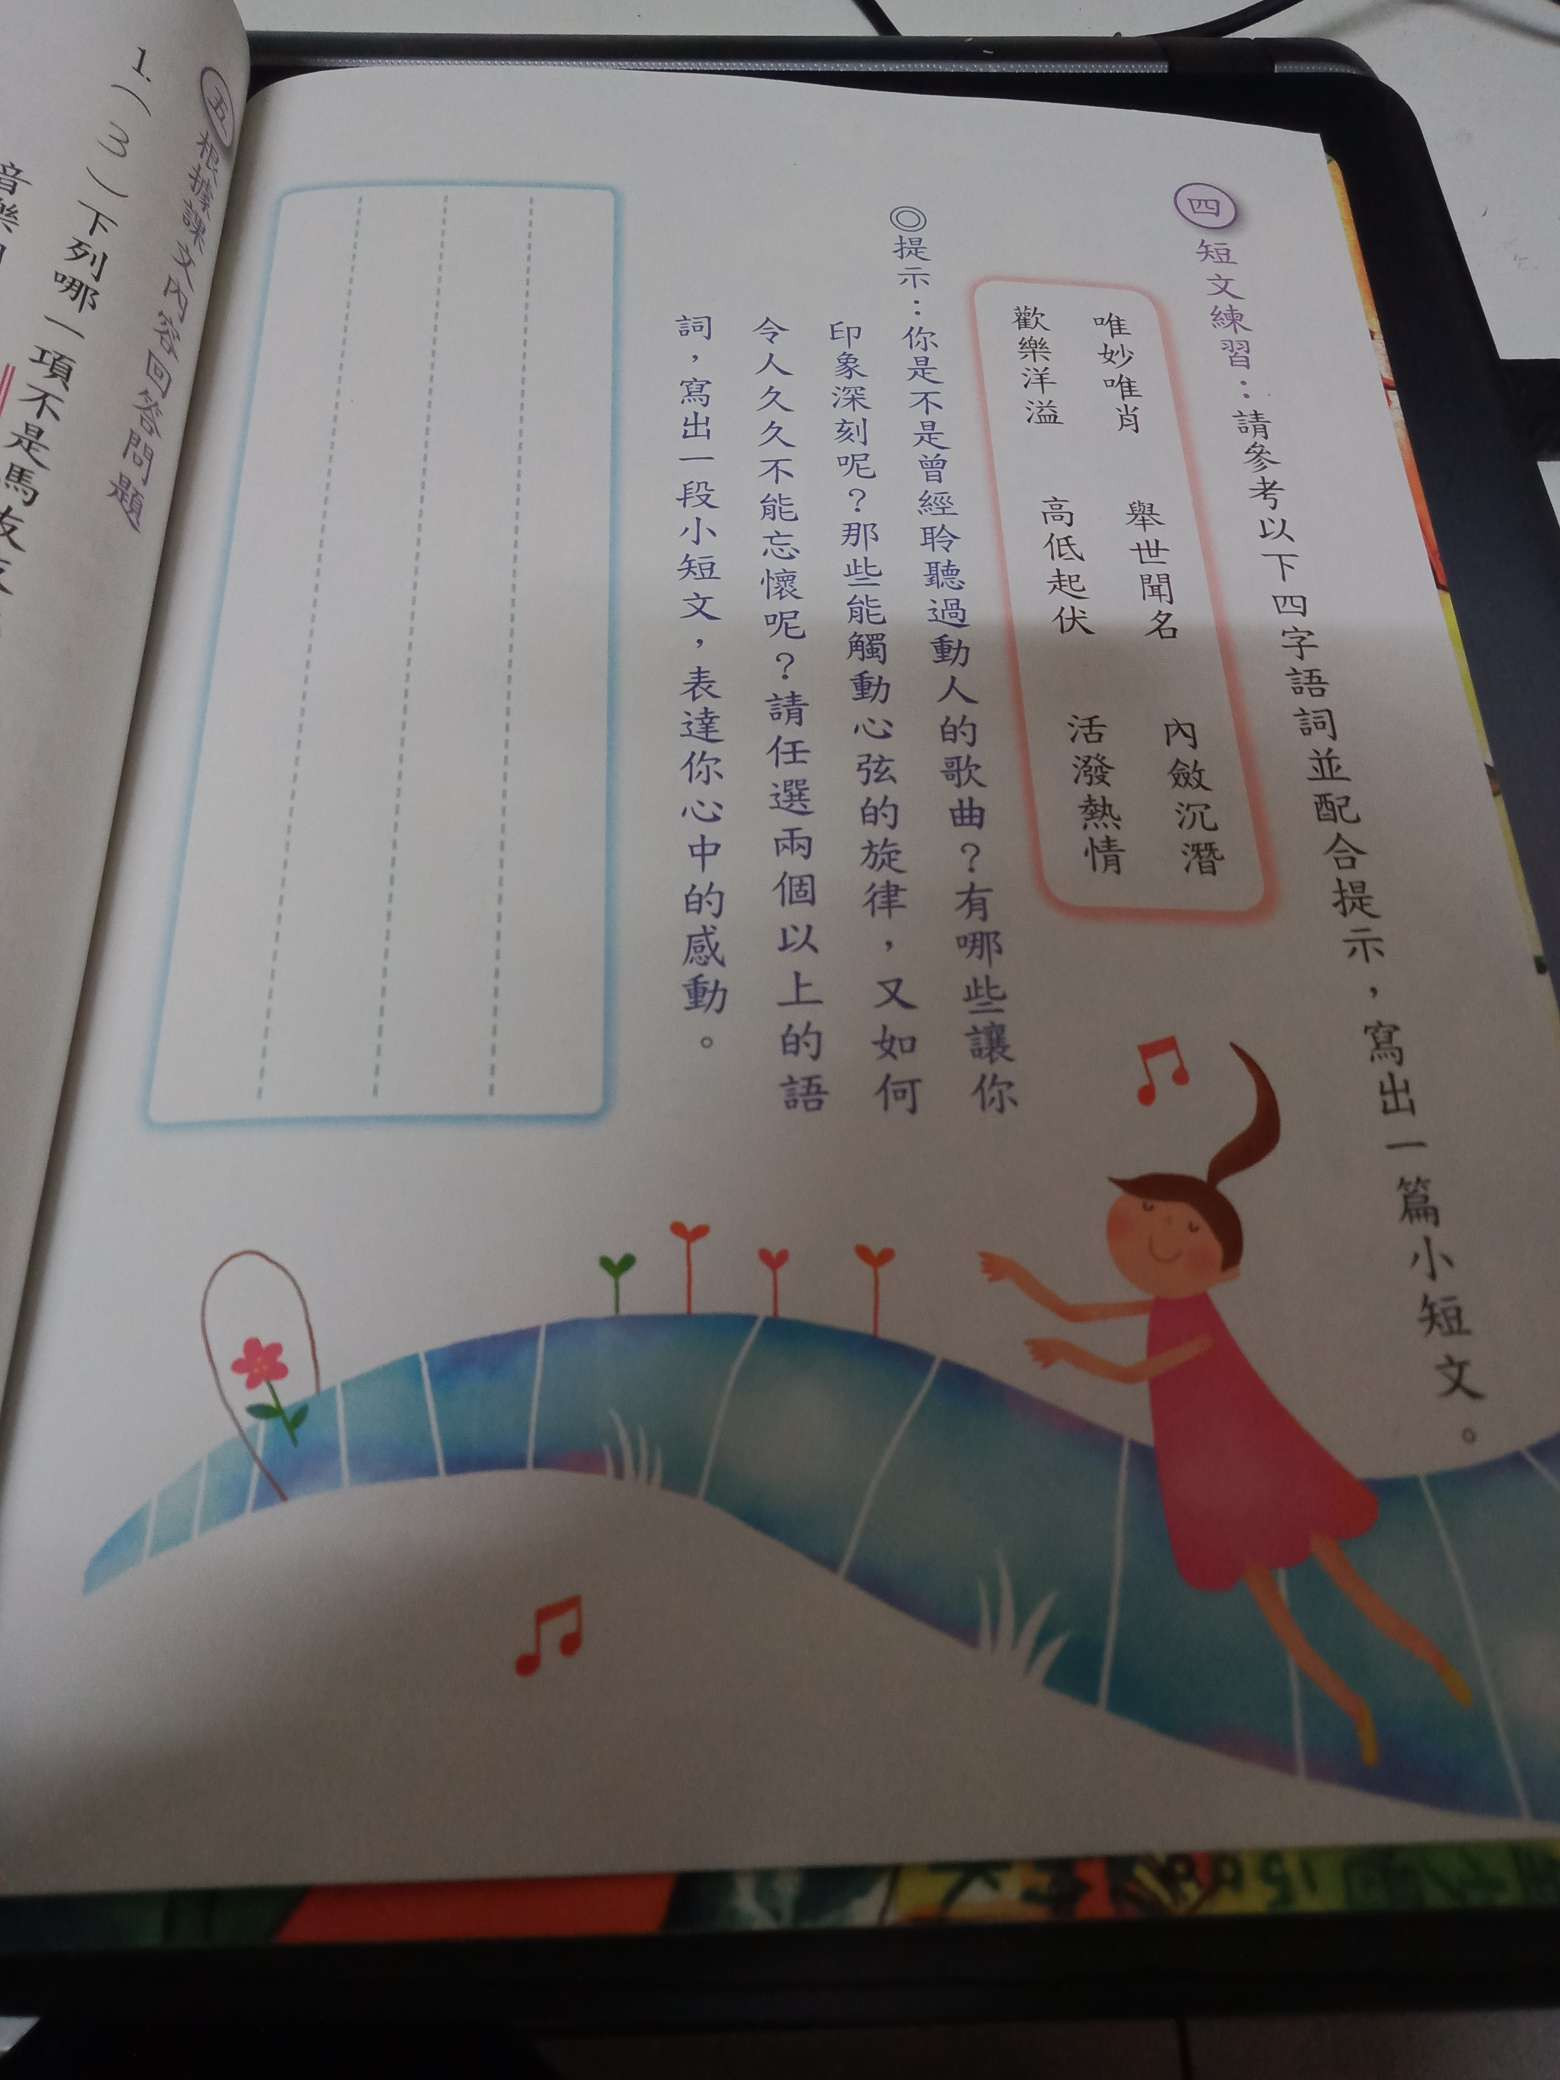 四 短文練習：請參考以下四字語詞並配合提示，寫出一篇小短文。
唯妙唯肖 舉世聞名 內斂沉潛
歡樂洋溢 高低起伏 活潑熱情
◎提示：你是不是曾經聆聽過動人的歌曲？有哪些讓你
印象深刻呢？那些能觸動心弦的旋律，又如何
令人久久不能忘懷呢？請任選兩個以上的語
詞，寫出一段小短文，表達你心中的感動。
五 根據課文內容回答問題
1.（3）下列哪一項不是馬
音樂